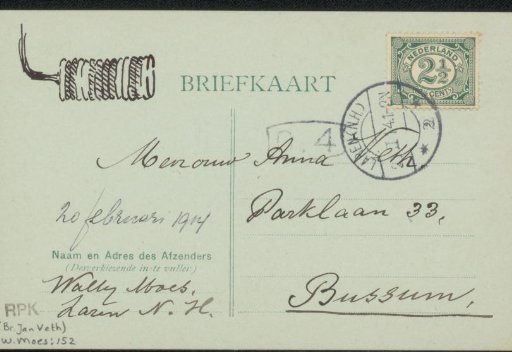 BRIEFKAART
NEDERLAND
2½
CENT
LAREN (N.H.)
P. 4
Mevrouw Anna Veth.
20 februari 1914
Parklaan 33,
Naam en Adres des Afzenders
(Desverkiezende in te vullen)
Wally Moes,
Laren N. H.
Bussum,
RPK
(Br. Jan Veth)
W. Moes: 152